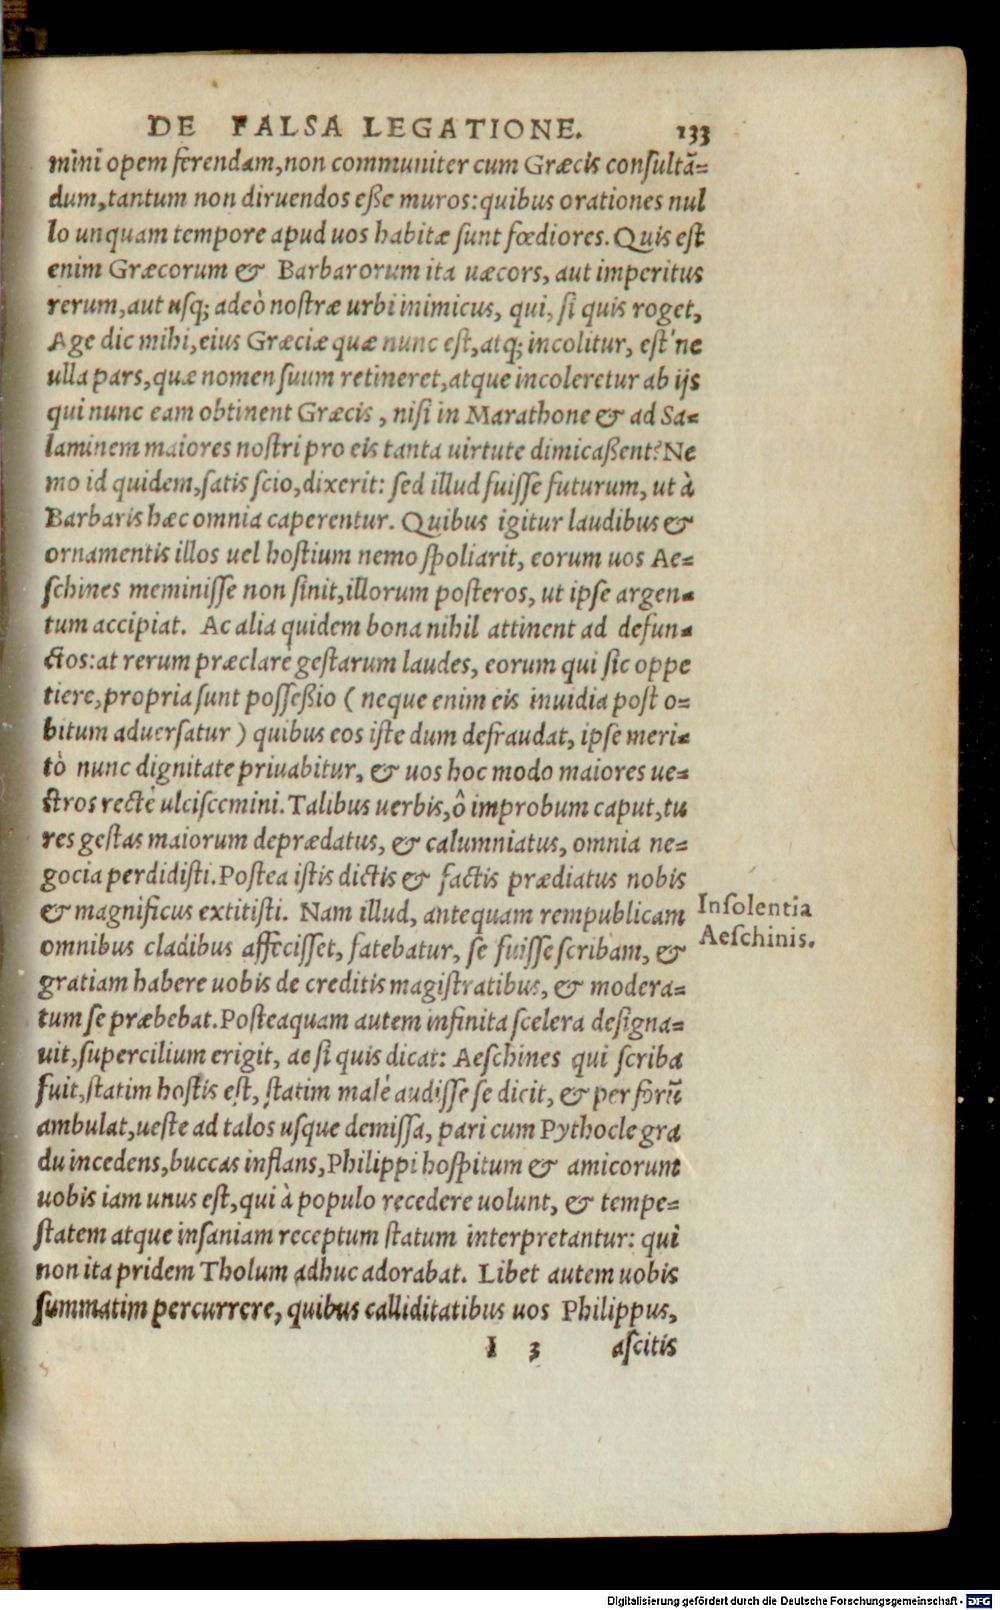 DE FALSA LEGATIONE. 133
mini opem ferendam, non communiter cum Græcis consultā-
dum, tantum non diruendos eße muros: quibus orationes nul
lo unquam tempore apud uos habitæ sunt fœdiores. Quis est
enim Græcorum & Barbarorum ita uæcors, aut imperitus
rerum, aut usq; adeò nostræ urbi inimicus, qui, si quis roget,
Age dic mihi, eius Græciæ quæ nunc est, atq; incolitur, est'ne
ulla pars, quæ nomen suum retineret, atque incoleretur ab ijs
qui nunc eam obtinent Græcis, nisi in Marathone & ad Sa-
laminem maiores nostri pro eis tanta uirtute dimicaßent? Ne
mo id quidem, satis scio, dixerit: sed illud fuisse futurum, ut à
Barbaris hæc omnia caperentur. Quibus igitur laudibus &
ornamentis illos uel hostium nemo spoliarit, eorum uos Ae-
schines meminisse non sinit, illorum posteros, ut ipse argen-
tum accipiat. Ac alia quidem bona nihil attinent ad defun-
ctos: at rerum præclarè gestarum laudes, eorum qui sic oppe
tiere, propria sunt posseßio (neque enim eis inuidia post o-
bitum aduersatur) quibus eos iste dum defraudat, ipse meri-
tò nunc dignitate priuabitur, & uos hoc modo maiores ue-
stros rectè ulciscemini. Talibus uerbis, ô improbum caput, tu
res gestas maiorum deprædatus, & calumniatus, omnia ne-
gocia perdidisti. Postea istis dictis & factis prædiatus nobis
& magnificus extitisti. Nam illud, antequam rempublicam
omnibus cladibus affecisset, fatebatur, se fuisse scribam, &
gratiam habere uobis de creditis magistratibus, & modera-
tum se præbebat. Posteaquam autem infinita scelera designa-
uit, supercilium erigit, ac si quis dicat: Aeschines qui scriba
fuit, statim hostis est, statim malè audisse se dicit, & per forū
ambulat, ueste ad talos usque demissa, pari cum Pythocle gra
du incedens, buccas inflans, Philippi hospitum & amicorum
uobis iam unus est, qui à populo recedere uolunt, & tempe-
statem atque insaniam receptum statum interpretantur: qui
non ita pridem Tholum adhuc adorabat. Libet autem uobis
summatim percurrere, quibus calliditatibus uos Philippus,
I 3 ascitis
Insolentia
Aeschinis.
Digitalisierung gefördert durch die Deutsche Forschungsgemeinschaft - DFG